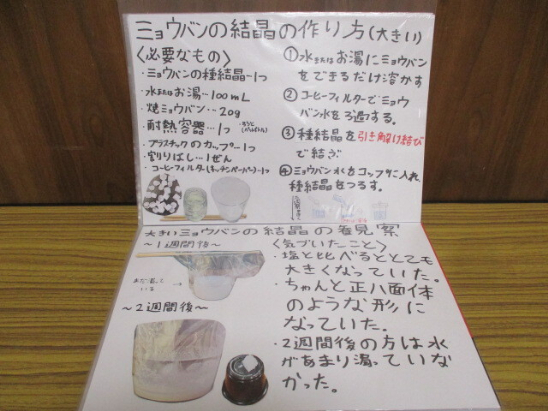 ミョウバンの結晶の作り方(大きい)
〈必要なもの〉
・ミョウバンの種結晶…1つ
・水またはお湯…100mL
・焼ミョウバン…20g
・耐熱容器…1つ
・プラスチックのカップ…1つ
・割りばし…1ぜん
・コーヒーフィルター(キッチンペーパー)…1つ
①水またはお湯にミョウバン
をできるだけ溶かす
②コーヒーフィルターでミョウ
バン水をろ過する。
③種結晶を引き解け結び
で結ぶ
④ミョウバン水をコップに入れ
種結晶をつるす。
大きいミョウバンの結晶の発見案
〜1週間後〜
まだ湿って
いる
〜2週間後〜
〈気づいたこと〉
・塩と比べるととても
大きくなっていた。
・ちゃんと正八面体
のような形に
なっていた.
・2週間後の方は水
があまり湿っていな
かった。